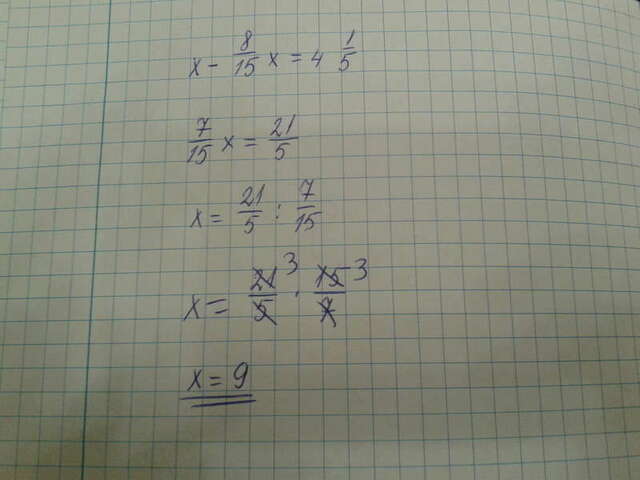 x - 8/15 x = 4 1/5
7/15 x = 21/5
x = 21/5 : 7/15
x = 21 3/5 · 15 3/7
x = 9